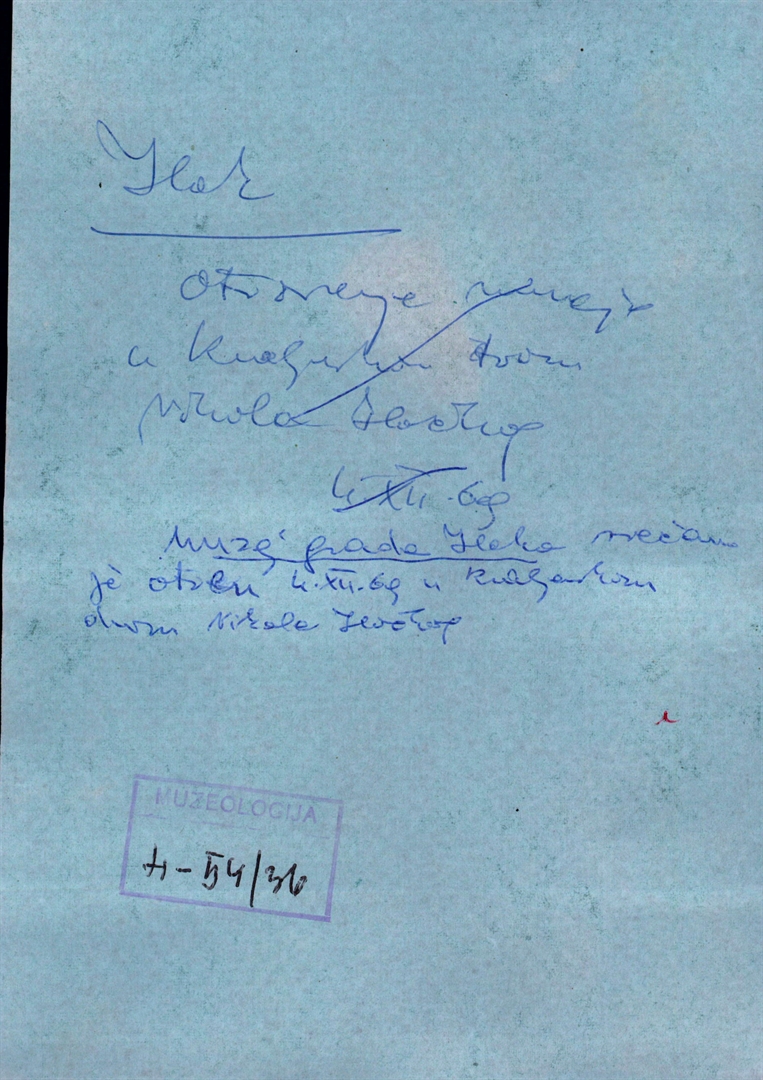 Ilok
Otvorenje muzeja
u Kraljevskom dvoru
Nikole Iločkog
4. XII. 69
Muzej grada Iloka svečano
je otvoren 4. XII. 69 u Kraljevskom
dvoru Nikole Iločkog
MUZEOLOGIJA